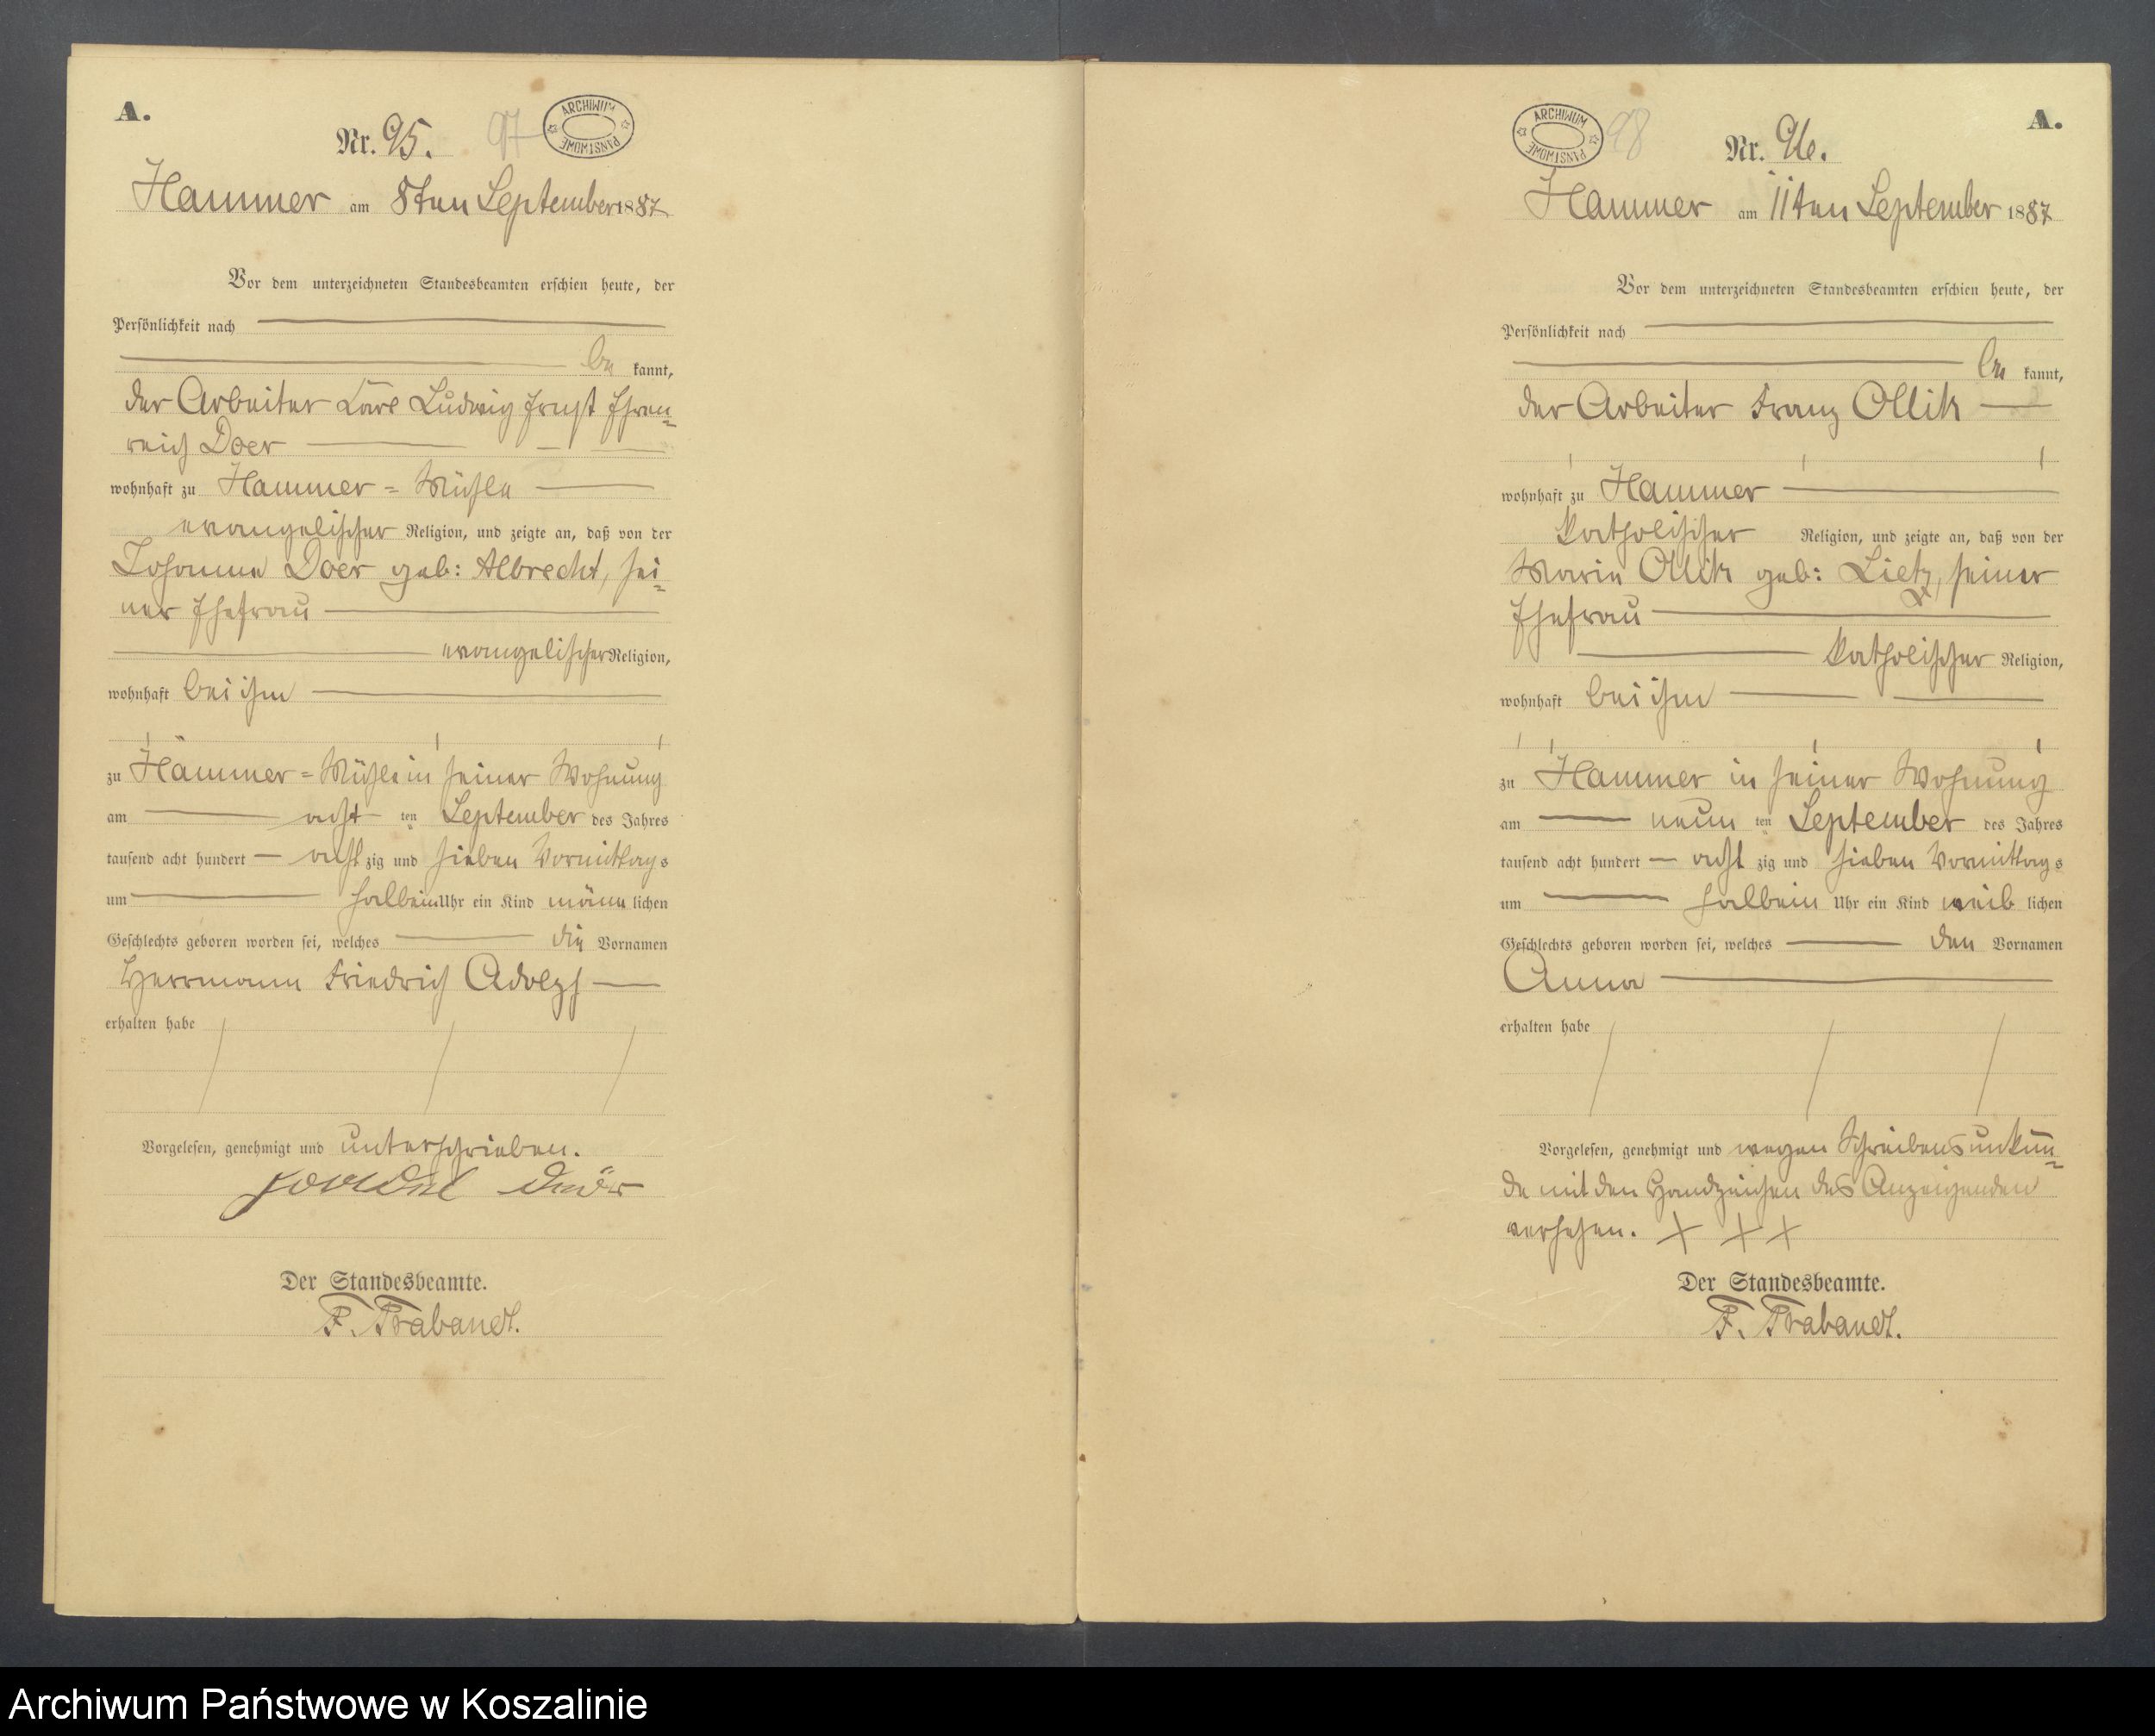 A.
Nr. 95.
97
ARCHIWUM PAŃSTWOWE
Hammer am 8ten September 1887
Vor dem unterzeichneten Standesbeamten erschien heute, der
Persönlichkeit nach
be kannt,
der Arbeiter Carl Ludwig Ernst Ehren=
reich Doer
wohnhaft zu Hammer=Mühle
evangelischer Religion, und zeigte an, daß von der
Johanne Doer geb: Albrecht, sei=
ner Ehefrau
evangelischer Religion,
wohnhaft bei ihm
zu Hammer=Mühle in seiner Wohnung
am acht ten September des Jahres
tausend acht hundert acht zig und sieben Vormittags
um halb ein Uhr ein Kind männ lichen
Geschlechts geboren worden sei, welches die Vornamen
Herrmann Friedrich Adolph
erhalten habe
Vorgelesen, genehmigt und unterschrieben.
Der Standesbeamte.
F. Brabandt.
ARCHIWUM PAŃSTWOWE
98
A.
Nr. 96.
Hammer am 11ten September 1887
Vor dem unterzeichneten Standesbeamten erschien heute, der
Persönlichkeit nach
be kannt,
der Arbeiter Franz Ollik
wohnhaft zu Hammer
katholischer Religion, und zeigte an, daß von der
Marie Ollik geb: Lietz, seiner
Ehefrau
katholischer Religion,
wohnhaft bei ihm
zu Hammer in seiner Wohnung
am neun ten September des Jahres
tausend acht hundert acht zig und sieben Vormittags
um halb ein Uhr ein Kind weib lichen
Geschlechts geboren worden sei, welches den Vornamen
Anna
erhalten habe
Vorgelesen, genehmigt und wegen Schreibensunkun=
de mit den Handzeichen des Anzeigenden
versehen. + + +
Der Standesbeamte.
F. Brabandt.
Archiwum Państwowe w Koszalinie